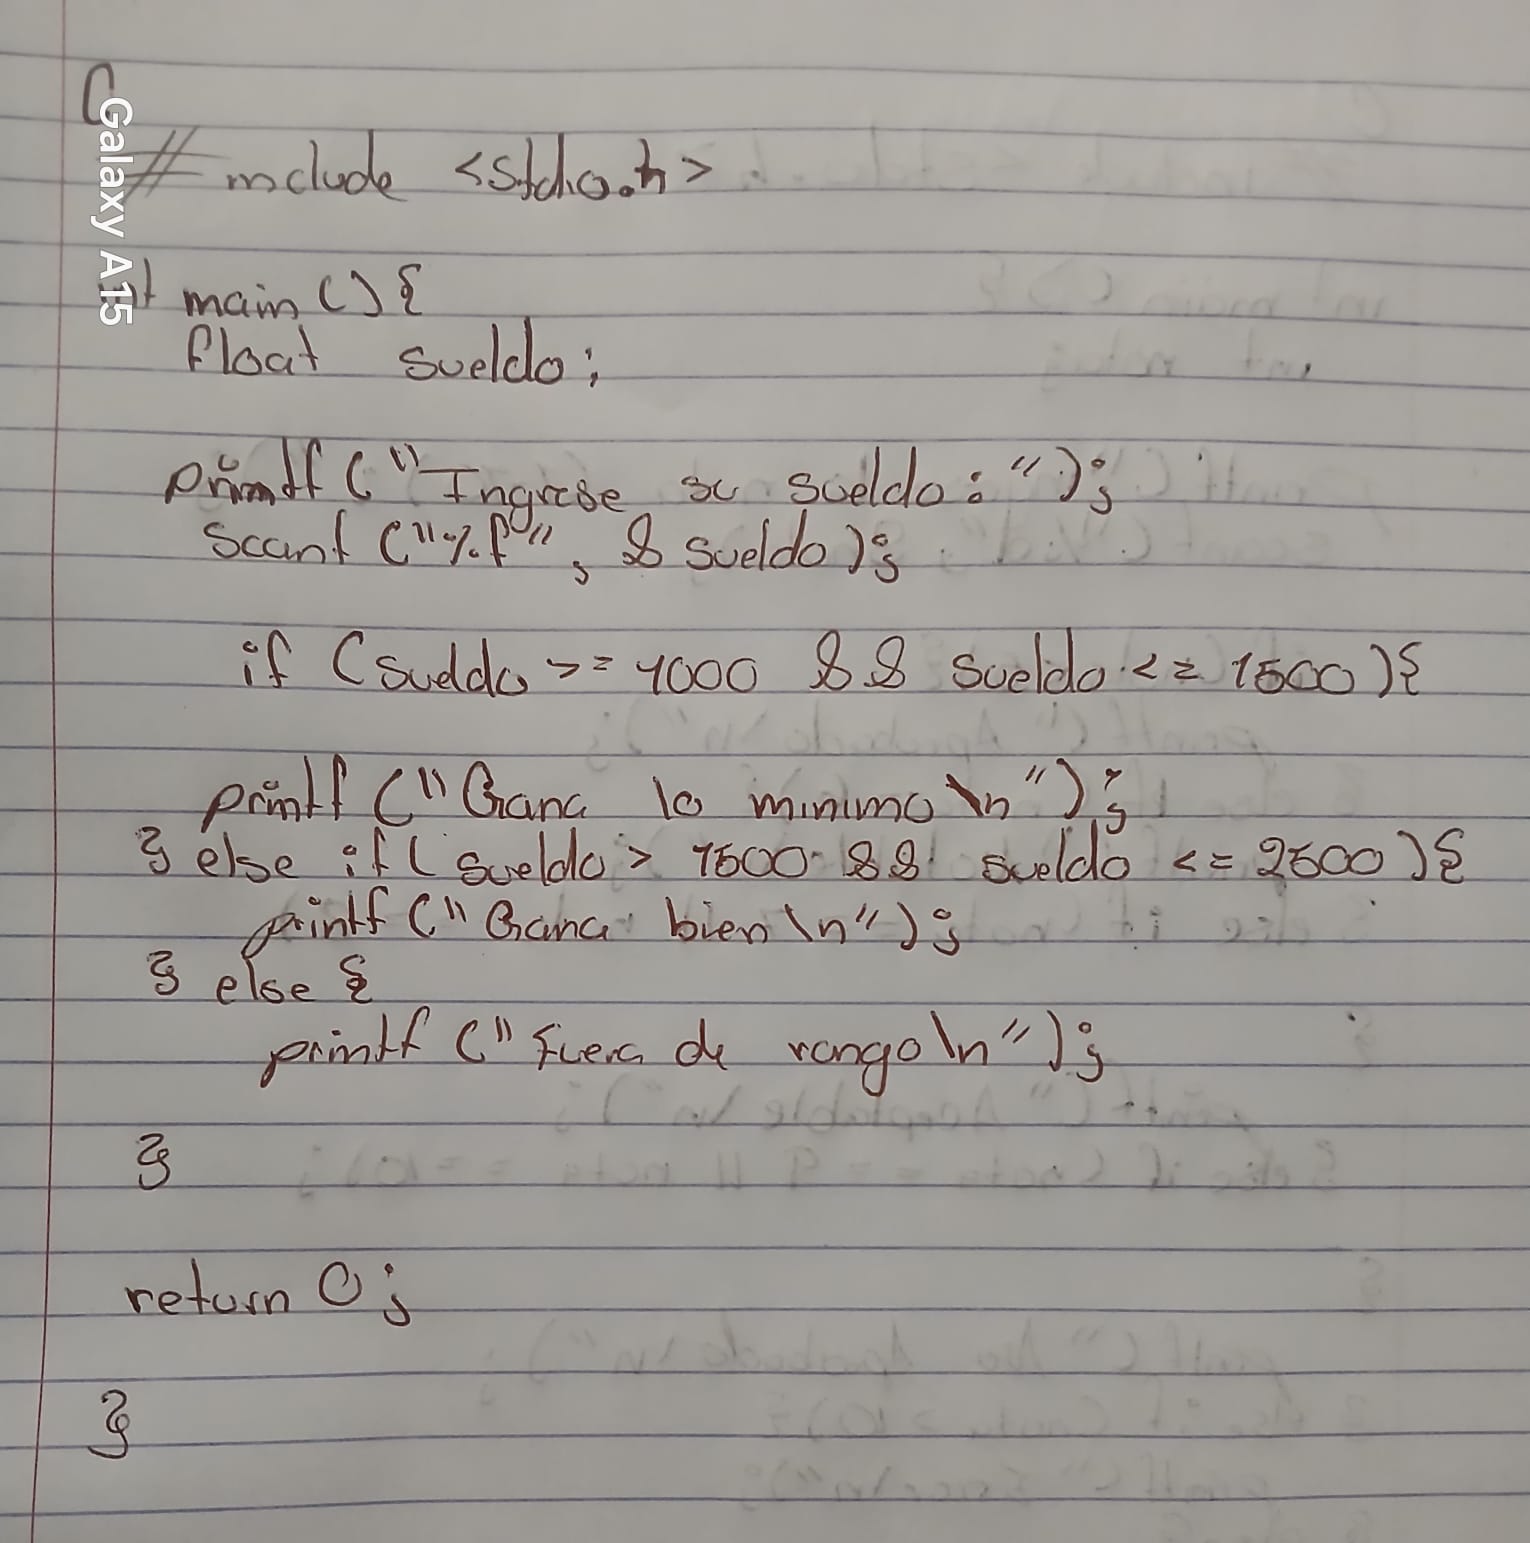 C
# include <stdio.h>
int main () {
float sueldo;
printf ("Ingrese su sueldo: ");
Scanf ("%f", & sueldo);
if (sueldo >= 1000 && sueldo <= 1500) {
printf ("Gana lo minimo \n");
} else if ( sueldo > 1500 && sueldo <= 2500) {
printf ("Gana bien \n");
} else {
printf ("Fuera de rango \n");
}
return 0;
}
Galaxy A15